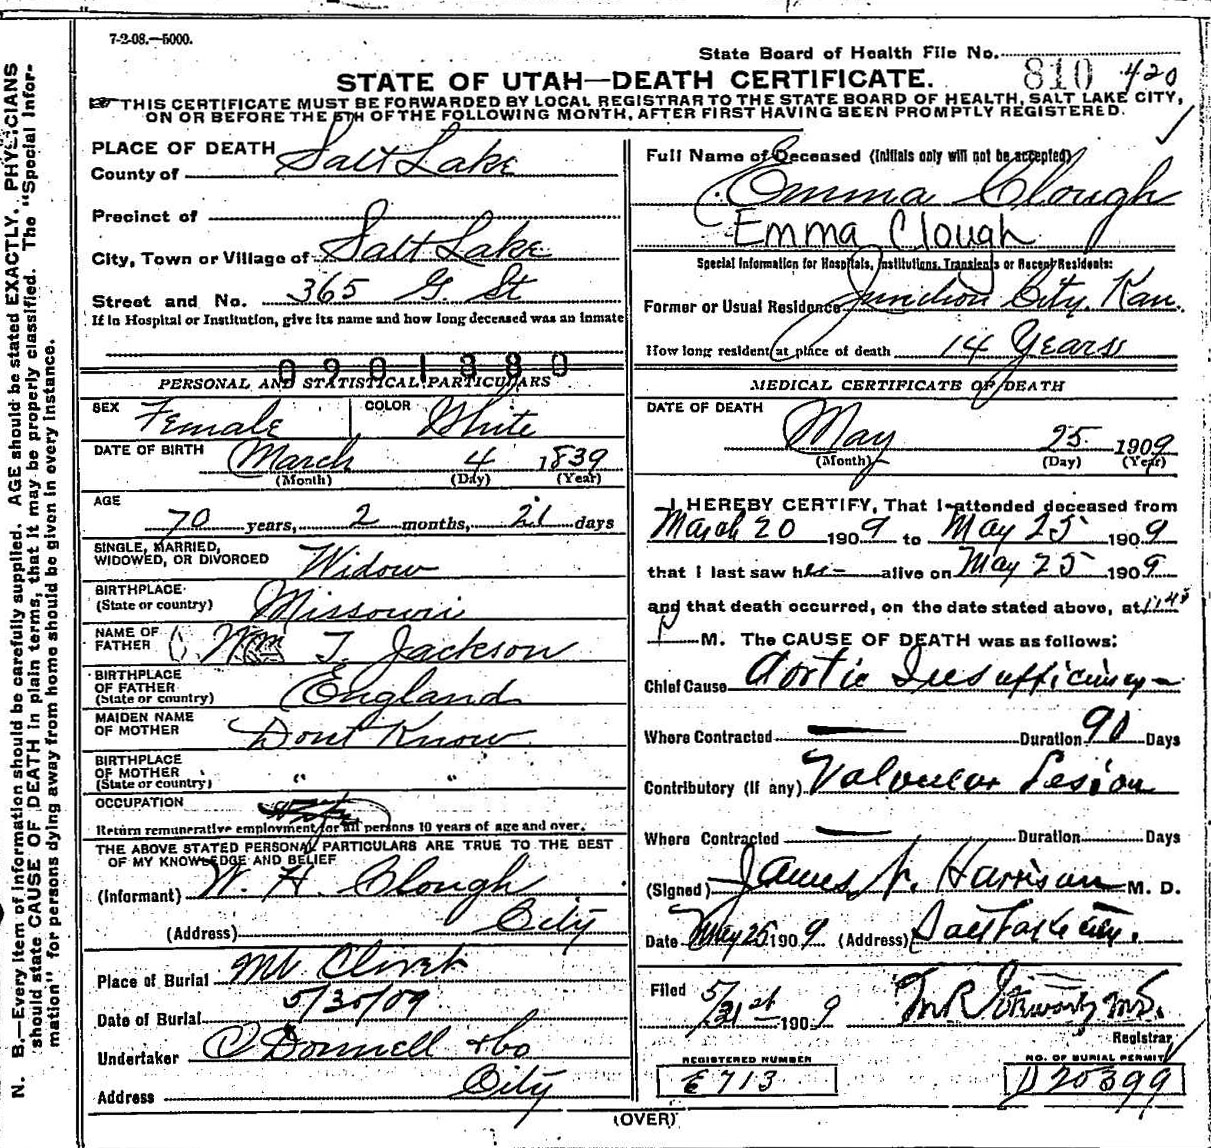 7-2-08.—5000.
State Board of Health File No.
810 420
STATE OF UTAH—DEATH CERTIFICATE.
THIS CERTIFICATE MUST BE FORWARDED BY LOCAL REGISTRAR TO THE STATE BOARD OF HEALTH, SALT LAKE CITY,
ON OR BEFORE THE 5TH OF THE FOLLOWING MONTH, AFTER FIRST HAVING BEEN PROMPTLY REGISTERED.
N. B.—Every item of information should be carefully supplied. AGE should be stated EXACTLY. PHYSICIANS
should state CAUSE OF DEATH in plain terms, that it may be properly classified. The "Special Infor-
mation" for persons dying away from home should be given in every instance.
PLACE OF DEATH
County of Salt Lake
Precinct of
City, Town or Village of Salt Lake
Street and No. 365 G. St
If in Hospital or Institution, give its name and how long deceased was an inmate
0901380
PERSONAL AND STATISTICAL PARTICULARS
SEX Female COLOR White
DATE OF BIRTH March 4 1839
(Month) (Day) (Year)
AGE
70 years, 2 months, 21 days
SINGLE, MARRIED,
WIDOWED, OR DIVORCED Widow
BIRTHPLACE
(State or country) Missouri
NAME OF
FATHER Wm T. Jackson
BIRTHPLACE
OF FATHER
(State or country) England
MAIDEN NAME
OF MOTHER Dont Know
BIRTHPLACE
OF MOTHER
(State or country) " "
OCCUPATION
Return remunerative employment for all persons 10 years of age and over.
THE ABOVE STATED PERSONAL PARTICULARS ARE TRUE TO THE BEST
OF MY KNOWLEDGE AND BELIEF
(Informant) W. H. Clough
(Address) City
Place of Burial Mt Olivet
Date of Burial 5/30/09
Undertaker O'Donnell & Co
Address City
Full Name of Deceased (Initials only will not be accepted)
Emma Clough
Emma Clough
Special Information for Hospitals, Institutions, Transients or Recent Residents:
Former or Usual Residence Junction City, Kan.
How long resident at place of death 14 Years
MEDICAL CERTIFICATE OF DEATH
DATE OF DEATH
May 25 1909
(Month) (Day) (Year)
I HEREBY CERTIFY, That I attended deceased from
March 20 1909 to May 25 1909
that I last saw her alive on May 25 1909
and that death occurred, on the date stated above, at 11 45
P M. The CAUSE OF DEATH was as follows:
Chief Cause Aortic Insufficiency
Where Contracted — Duration 90 Days
Contributory (if any) Valvular Lesion
Where Contracted — Duration Days
(Signed) James N. Harrison M. D.
Date May 26 1909 (Address) Salt Lake City.
Filed 5/31st 1909 M.D.
Registrar
REGISTERED NUMBER
E 713
NO. OF BURIAL PERMIT
D 20399
(OVER)